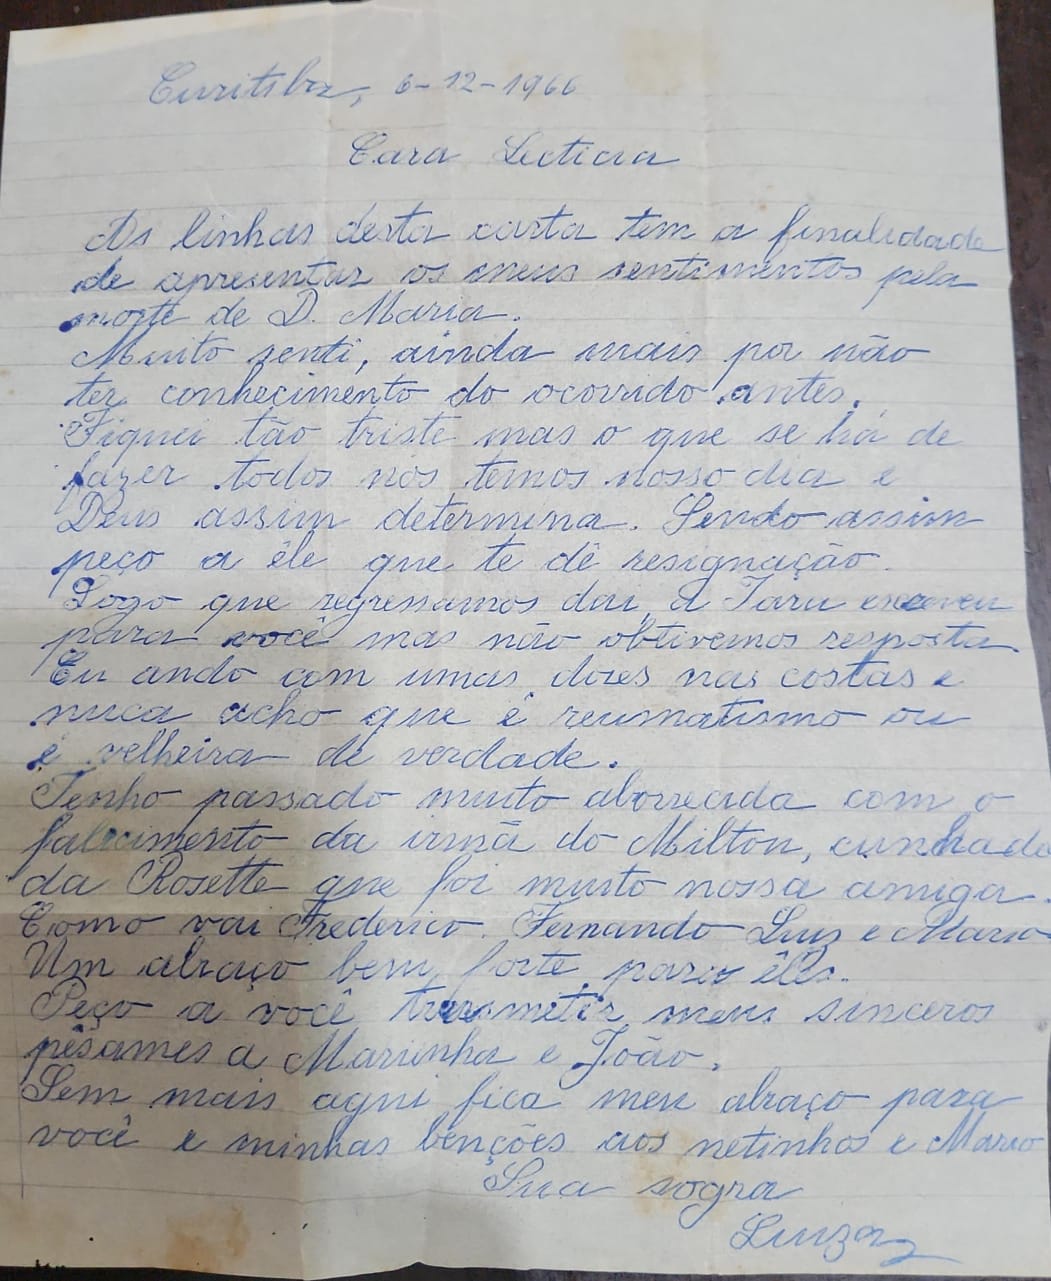 Curitiba, 6-12-1966
Cara Lecticia
As linhas desta carta tem a finalidade
de apresentar os meus sentimentos pela
morte de D. Maria.
Muito senti, ainda mais por não
ter conhecimento do ocorrido antes.
Fiquei tão triste mas o que se há de
fazer todos nós temos nosso dia e
Deus assim determina. Sendo assim
peço a êle que te dê resignação.
Logo que regressamos daí, a Jaru escreveu
para você mas não obtivemos resposta.
Eu ando com umas dores nas costas e
nuca acho que é reumatismo ou
é velheira de verdade.
Tenho passado muito aborrecida com o
falecimento da irmã do Milton, cunhada
da Rosette que foi muito nossa amiga.
Como vai Frederico. Fernando Luiz e Mario
Um abraço bem forte para êles.
Peço a você transmetir meus sinceros
pêsames a Marinha e João.
Sem mais aqui fica meu abraço para
você e minhas benções aos netinhos e Mario
Sua sogra
Luiza